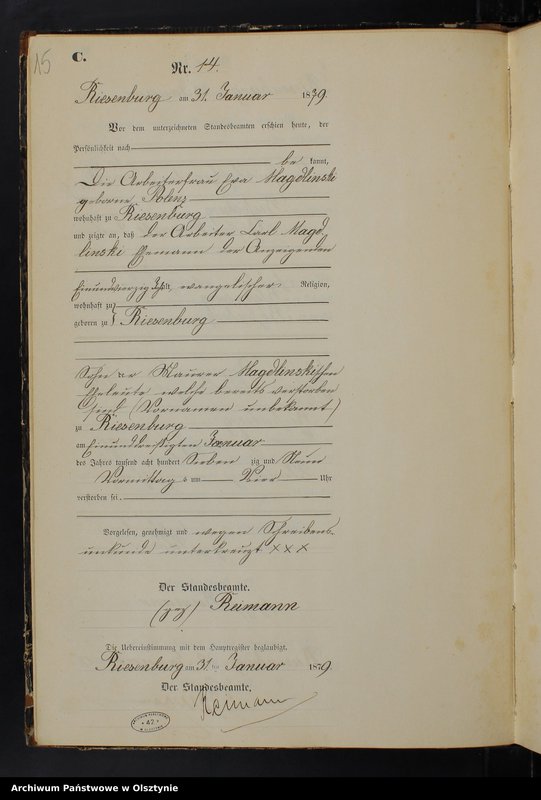 15
C.
Nr. 14.
Riesenburg am 31. Januar 1879
Vor dem unterzeichneten Standesbeamten erschien heute, der
Persönlichkeit nach
be kannt,
Die Arbeiterfrau Eva Magdlinski
geborne
wohnhaft zu Riesenburg
und zeigte an, daß der Arbeiter Carl Magd
linski Ehemann der Anzeigenden
Einundvierzig Jahr alt, evangelischer Religion,
wohnhaft zu
geboren zu Riesenburg
Sohn der Maurer Magdlinskischen
Eheleute welche bereits verstorben
sind (Vornamen unbekannt)
zu Riesenburg
am Einunddreißigten Januar
des Jahres tausend acht hundert Sieben zig und Neun
Vormittag s um Vier Uhr
verstorben sei.
Vorgelesen, genehmigt und wegen Schreibens-
unkunde unterkreuzt X X X
Der Standesbeamte.
(gez) Reimann
Die Uebereinstimmung mit dem Hauptregister beglaubigt.
Riesenburg am 31. ten Januar 1879
Der Standesbeamte.
Reimann
42
Archiwum Państwowe w Olsztynie